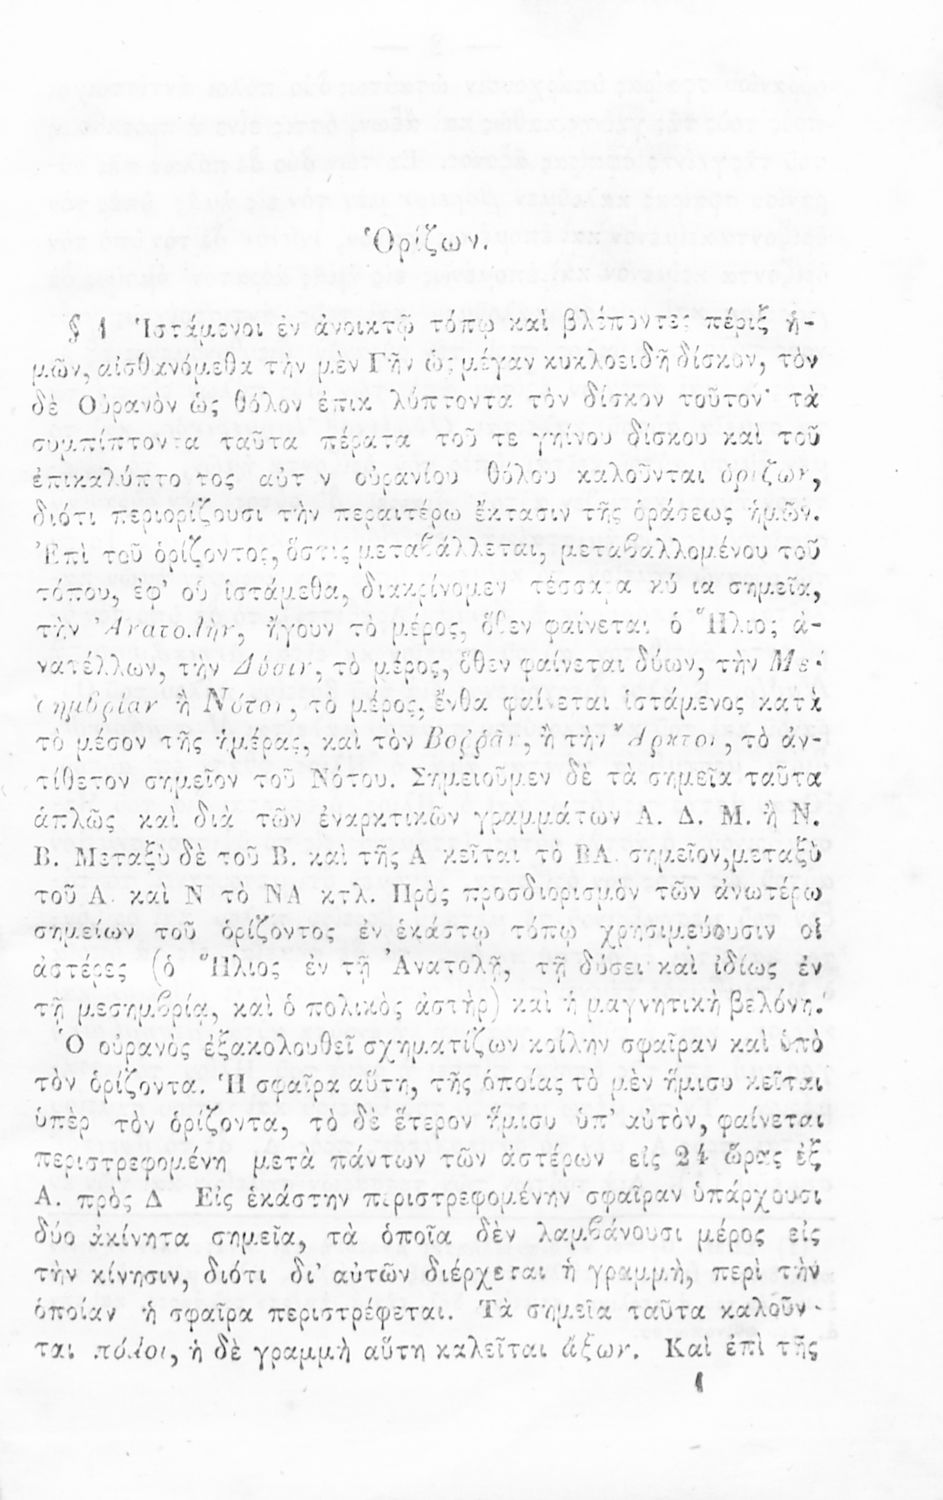 Ὁρίζων.
§ 1 Ἱστάμενοι ἐν ἀνοικτῷ τόπῳ καὶ βλέποντες πέριξ ἡ-
μῶν, αἰσθανόμεθα τὴν μὲν Γῆν ὡς μέγαν κυκλοειδῆ δίσκον, τὸν
δὲ Οὐρανὸν ὡς θόλον ἐπικ λύπτοντα τὸν δίσκον τοῦτον· τὰ
συμπίπτοντα ταῦτα πέρατα τοῦ τε γηίνου δίσκου καὶ τοῦ
ἐπικαλύπτο τος αὐτ ν οὐρανίου θόλου καλοῦνται ὁρίζων,
διότι περιορίζουσι τὴν περαιτέρω ἔκτασιν τῆς ὁράσεως ἡμῶν.
Ἐπὶ τοῦ ὁρίζοντος, ὅστις μεταβάλλεται, μεταβαλλομένου τοῦ
τόπου, ἐφ’ οὗ ἱστάμεθα, διακρίνομεν τέσσα α κύ ια σημεῖα,
τὴν Ἀνατολὴν, ἤγουν τὸ μέρος, ὅθεν φαίνεται ὁ Ἥλιος ἀ-
νατέλλων, τὴν Δύσιν, τὸ μέρος, ὅθεν φαίνεται δύων, τὴν Με-
σημβρίαν ἢ Νότον, τὸ μέρος, ἔνθα φαίνεται ἱστάμενος κατὰ
τὸ μέσον τῆς ἡμέρας, καὶ τὸν Βοῤῥᾶν, ἢ τὴν Ἄρκτον, τὸ ἀν-
τίθετον σημεῖον τοῦ Νότου. Σημειοῦμεν δὲ τὰ σημεῖα ταῦτα
ἁπλῶς καὶ διὰ τῶν ἐναρκτικῶν γραμμάτων Α. Δ. Μ. ἢ Ν.
Β. Μεταξὺ δὲ τοῦ Β. καὶ τῆς Α κεῖται τὸ ΒΑ. σημεῖον, μεταξὺ
τοῦ Α. καὶ Ν τὸ ΝΑ κτλ. Πρὸς προσδιορισμὸν τῶν ἀνωτέρω
σημείων τοῦ ὁρίζοντος ἐν ἑκάστῳ τόπῳ χρησιμεύουσιν οἱ
ἀστέρες (ὁ Ἥλιος ἐν τῇ Ἀνατολῇ, τῇ δύσει καὶ ἰδίως ἐν
τῇ μεσημβρίᾳ, καὶ ὁ πολικὸς ἀστὴρ) καὶ ἡ μαγνητικὴ βελόνη.
Ὁ οὐρανὸς ἐξακολουθεῖ σχηματίζων κοίλην σφαῖραν καὶ ὑπὸ
τὸν ὁρίζοντα. Ἡ σφαῖρα αὕτη, τῆς ὁποίας τὸ μὲν ἥμισυ κεῖται
ὑπὲρ τὸν ὁρίζοντα, τὸ δὲ ἕτερον ἥμισυ ὑπ’ αὐτὸν, φαίνεται
περιστρεφομένη μετὰ πάντων τῶν ἀστέρων εἰς 24 ὥρας ἐξ
Α. πρὸς Δ Εἰς ἑκάστην περιστρεφομένην σφαῖραν ὑπάρχουσι
δύο ἀκίνητα σημεῖα, τὰ ὁποῖα δὲν λαμβάνουσι μέρος εἰς
τὴν κίνησιν, διότι δι’ αὐτῶν διέρχεται ἡ γραμμὴ, περὶ τὴν
ὁποίαν ἡ σφαῖρα περιστρέφεται. Τὰ σημεῖα ταῦτα καλοῦν-
ται πόλοι, ἡ δὲ γραμμὴ αὕτη καλεῖται ἄξων. Καὶ ἐπὶ τῆς
1